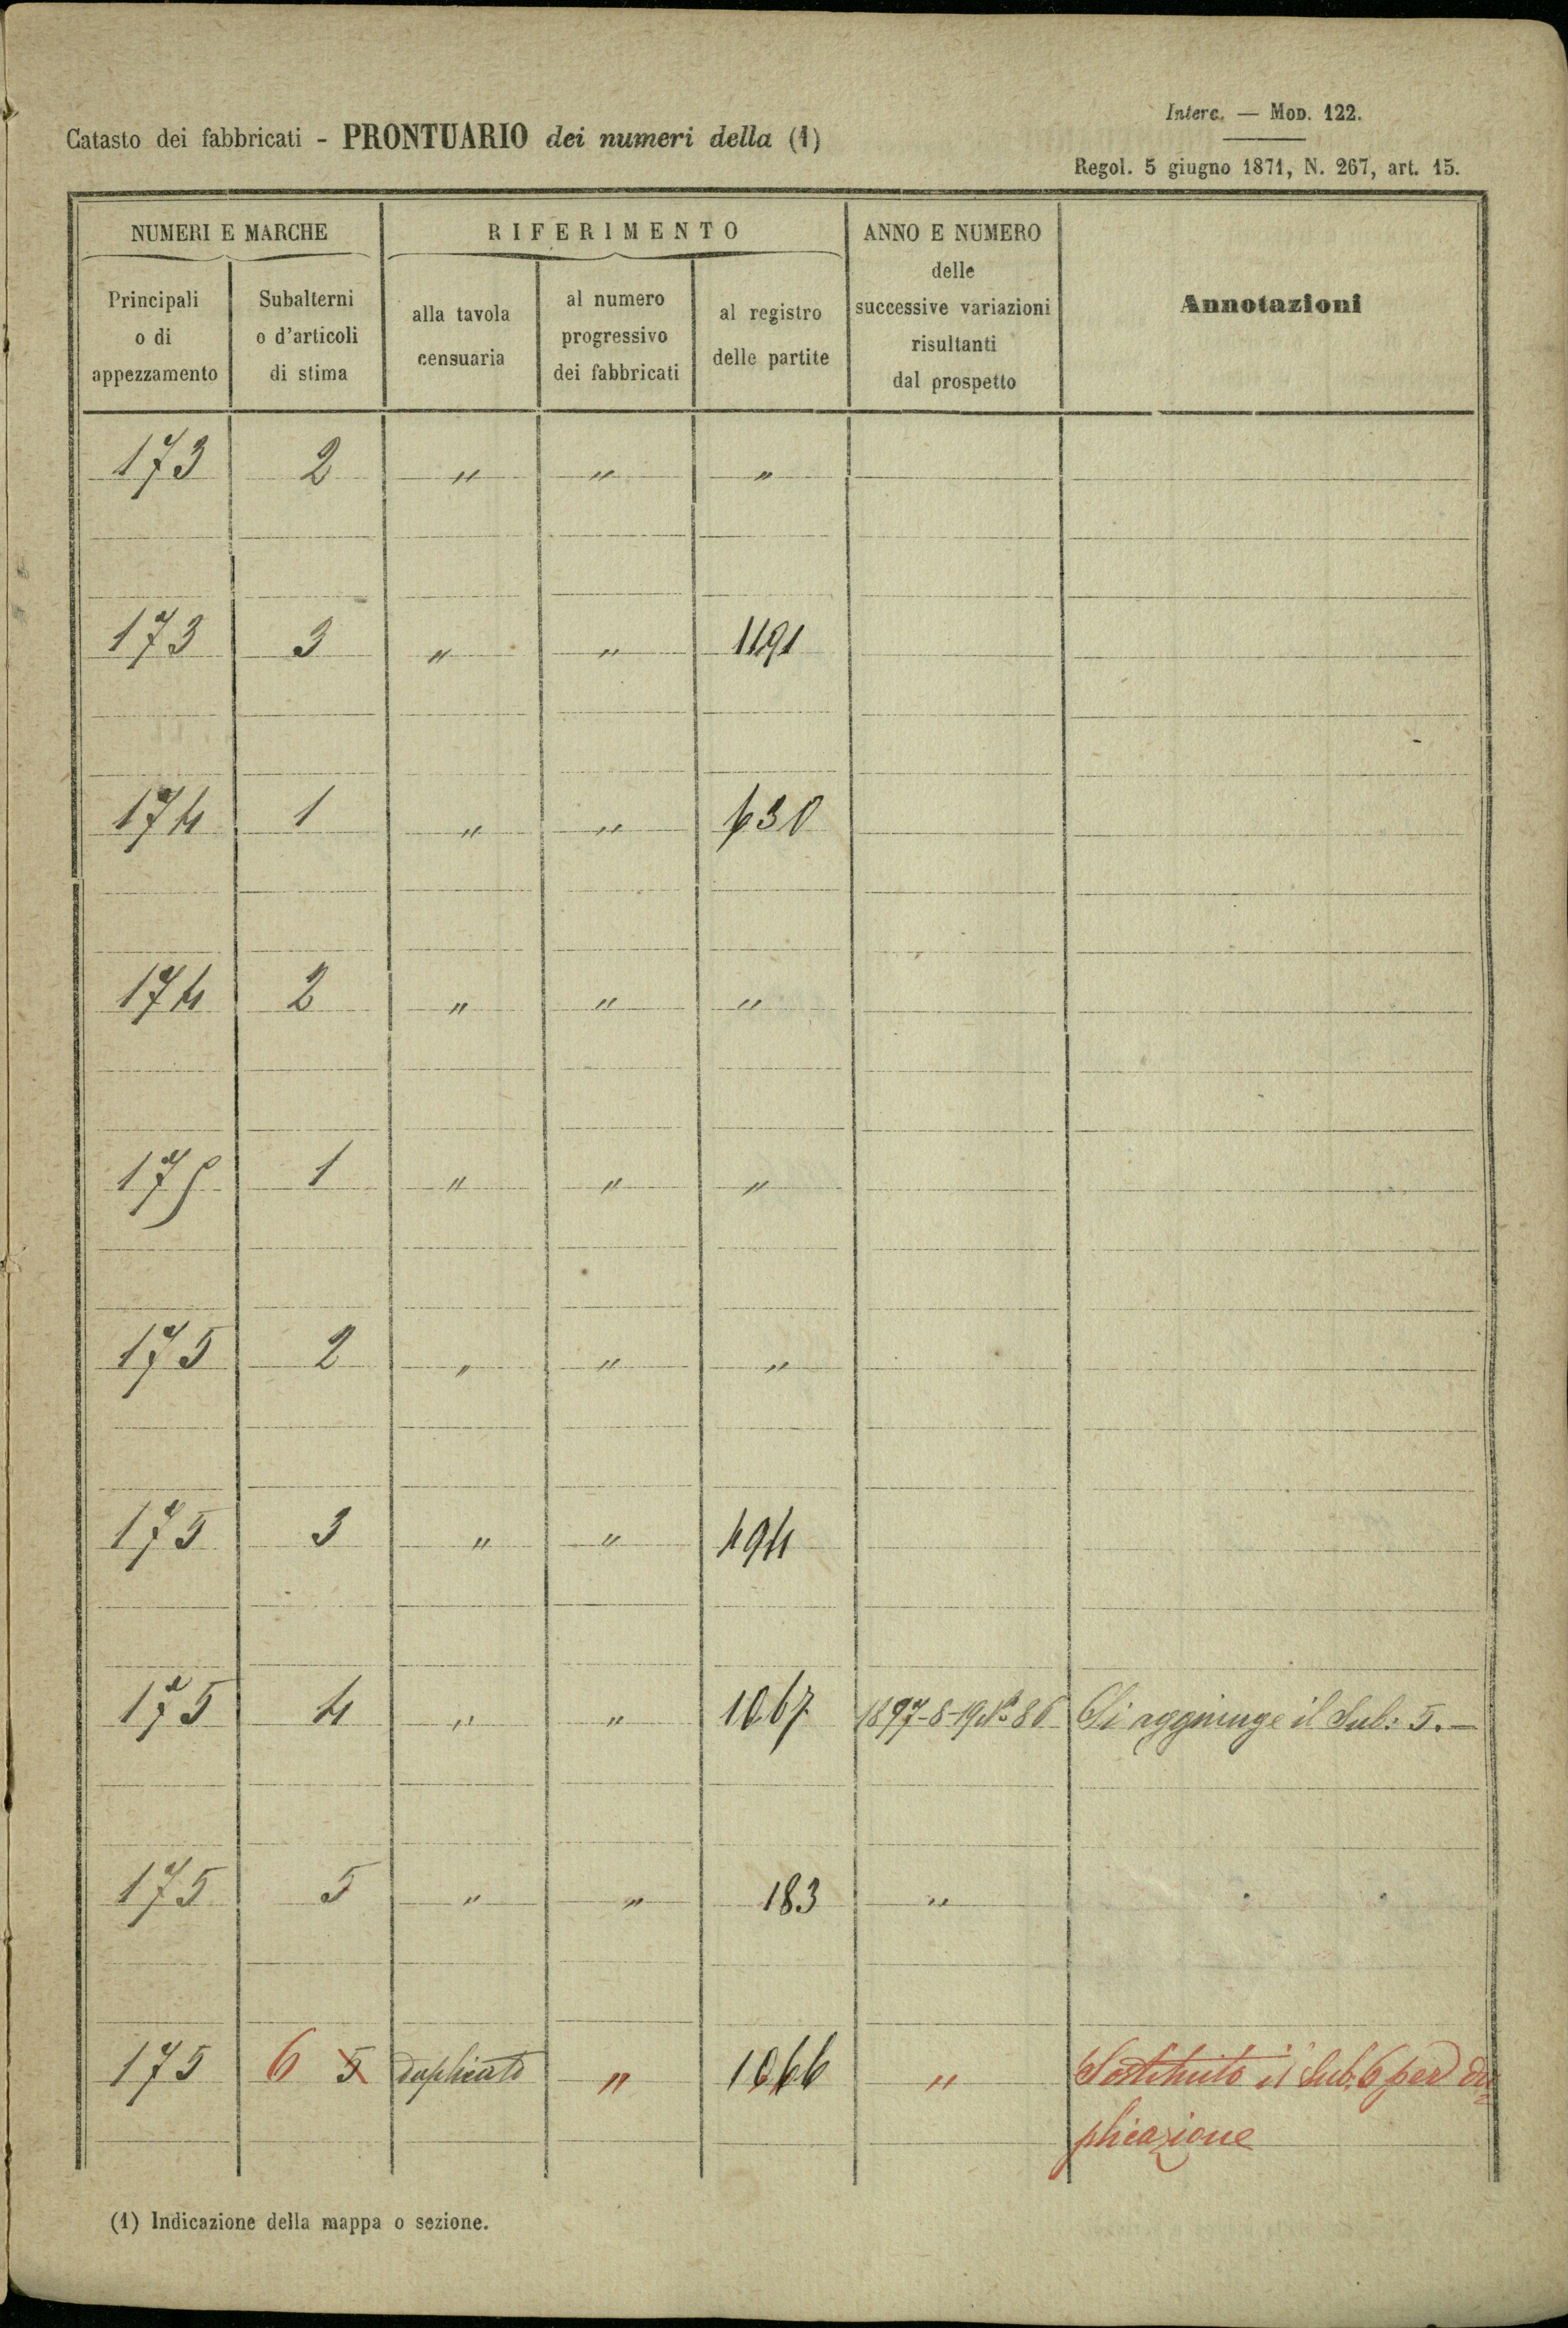 Interc. — Mod. 122.
Catasto dei fabbricati - PRONTUARIO dei numeri della (1)
Regol. 5 giugno 1871, N. 267, art. 15.
NUMERI E MARCHE
Principali o di appezzamento
Subalterni o d'articoli di stima
RIFERIMENTO
alla tavola censuaria
al numero progressivo dei fabbricati
al registro delle partite
ANNO E NUMERO delle successive variazioni risultanti dal prospetto
Annotazioni
173 2 " " "
173 3 " " 1191
174 1 " " 630
174 2 " " "
175 1 " " "
175 2 " " "
175 3 " " 494
175 4 " " 1067 1897-8-19 N° 86 Si aggiunge il Sub: 5.—
175 5 " " 183 "
175 6 5 duplicato " 1066 " Sostituito il Sub. 6 per du=
plicazione
(1) Indicazione della mappa o sezione.